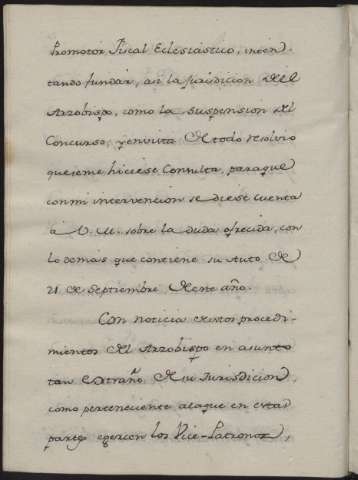 Promotor Fiscal Eclesiastico, inten-
tando fundar, asi la jurisdicion del
Arzobispo, como la suspension del
Concurso, y en vista de todo resolvio
que se me hiciese Consulta, para que
con mi intervencion se diese cuenta
à V. M. sobre la duda ofrecida, con
lo demas que contiene su Auto de
21 de Septiembre de este año.
Con noticia de estos procedi-
mientos del Arzobispo en asunto
tan Extraño de su Jurisdicion,
como perteneciente a la que en estas
partes egercen los Vice-Patronos,